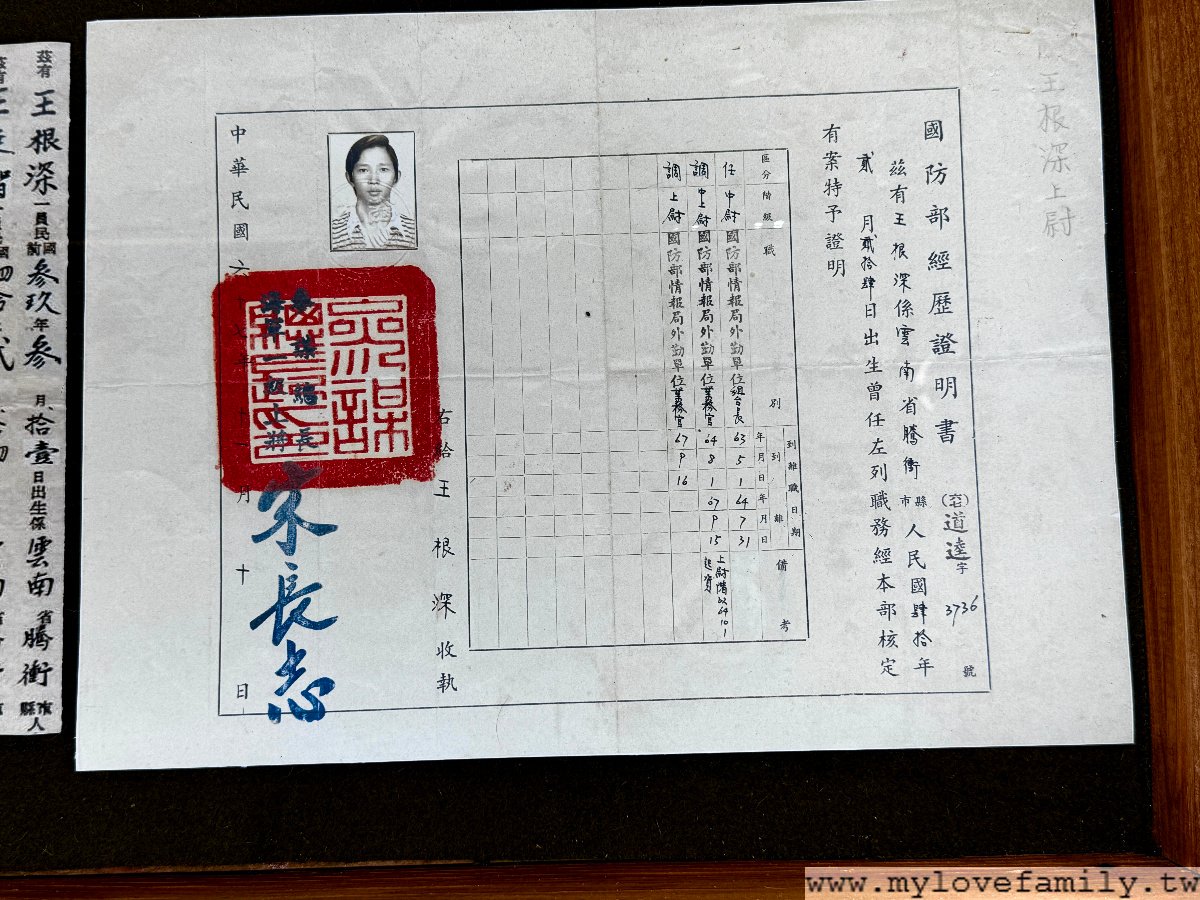 王根深上尉
國防部經歷證明書
(六七)道達字3736號
茲有王根深係雲南省騰衝縣市人民國肆拾年
貳月貳拾肆日出生曾任左列職務經本部核定
有案特予證明
區分 階級 職別 到離職日期 備考
到 年月日 離 年月日
任 中尉 國防部情報局外勤單位組合長 63 5 1 64 7 31
調 中上尉 國防部情報局外勤單位業務官 64 8 1 67 9 15 上尉階以64101起資
調 上尉 國防部情報局外勤單位業務官 67 9 16
右給王根深收執
參謀總長
海軍一級上將
宋長志
中華民國六 年 月十日
茲有王根深一員民國前參玖年參月拾壹日出生係雲南省騰衝縣市人
茲有
www.mylovefamily.tw